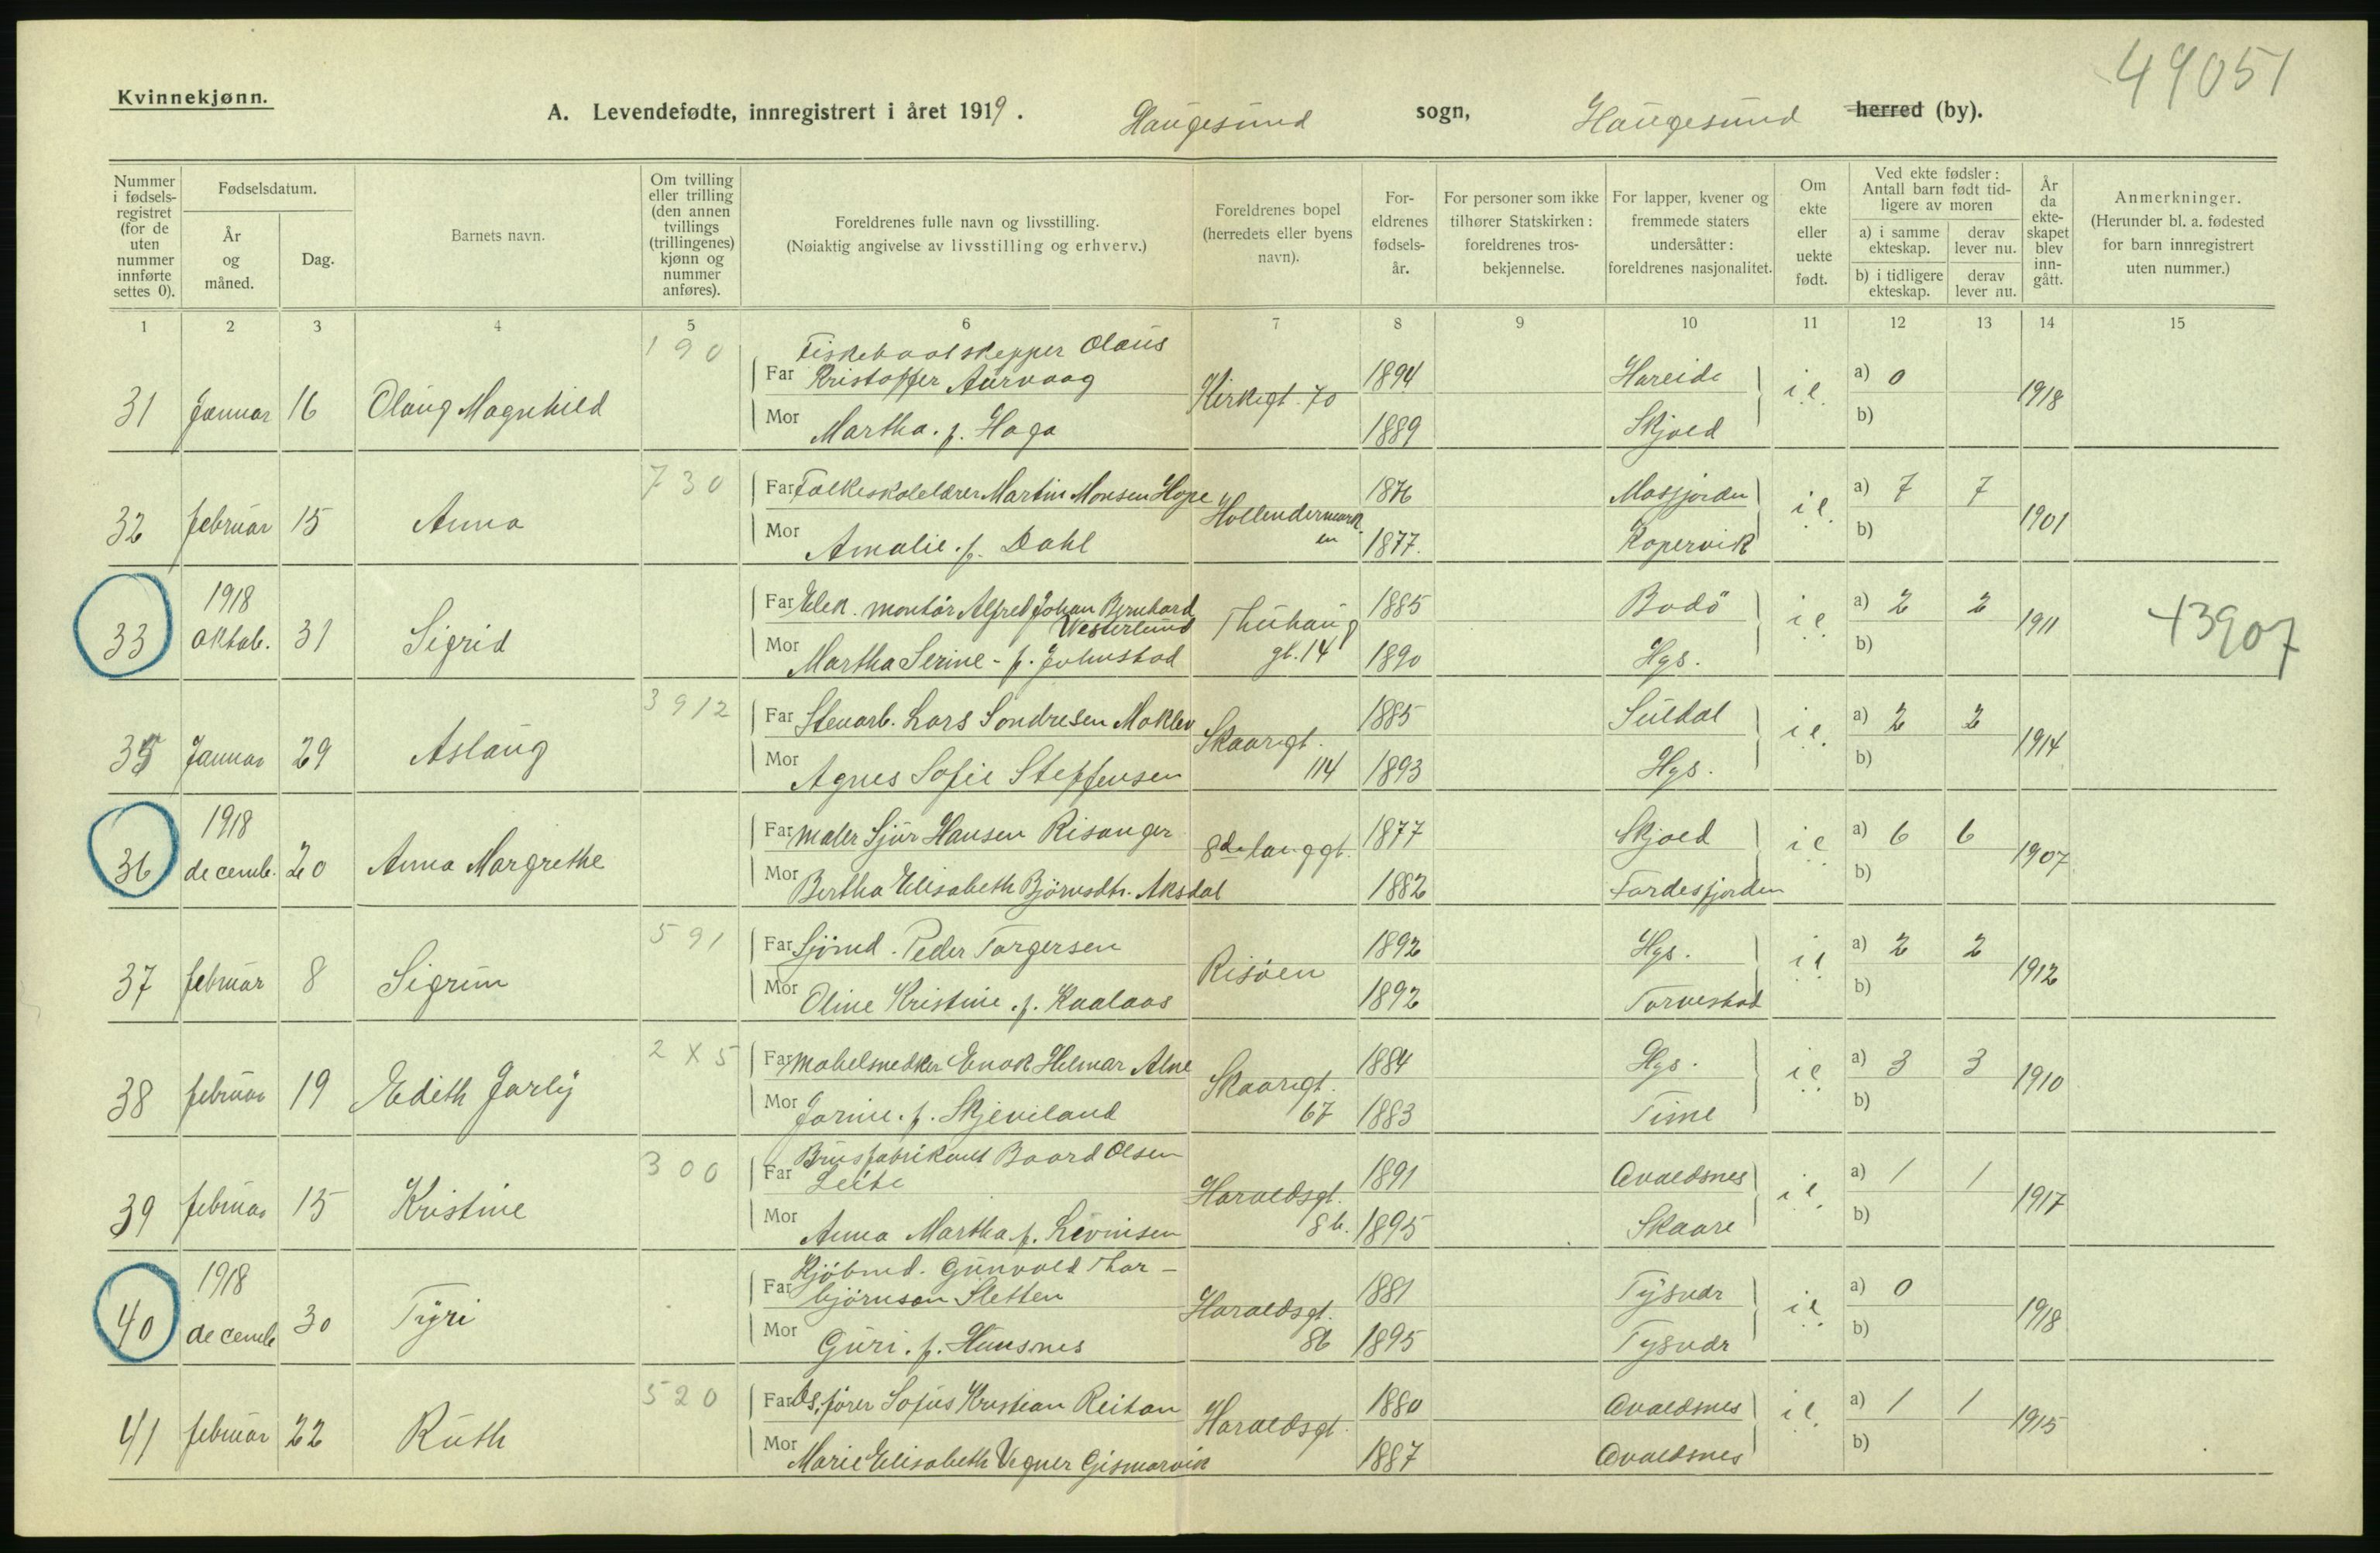 49051
Kvinnekjønn.
A. Levendefødte, innregistrert i året 1919. Haugesund sogn, Haugesund herred (by).
Nummer i fødsels-registret (for de uten nummer innførte settes 0).
Fødselsdatum.
År og måned.
Dag.
Barnets navn.
Om tvilling eller trilling (den annen tvillings (trillingenes) kjønn og nummer anføres).
Foreldrenes fulle navn og livsstilling.
(Nøiaktig angivelse av livsstilling og erhverv.)
Foreldrenes bopel (herredets eller byens navn).
For-eldrenes fødsels-år.
For personer som ikke tilhører Statskirken: foreldrenes tros-bekjennelse.
For lapper, kvener og fremmede staters undersåtter: foreldrenes nasjonalitet.
Om ekte eller uekte født.
Ved ekte fødsler: Antall barn født tid-ligere av moren
a) i samme ekteskap.
derav lever nu.
b) i tidligere ekteskap.
derav lever nu.
År da ekte-skapet blev inn-gått.
Anmerkninger.
(Herunder bl. a. fødested for barn innregistrert uten nummer.)
1 2 3 4 5 6 7 8 9 10 11 12 13 14 15
190
Fiskebaatskepper Olaus
Far Kristoffer Aurvaag 1894 Hareide a) 0
31 Januar 16 Olaug Magnhild Kirkegt. 70 i e. 1918
Mor Martha. f. Haga 1889 Skjold b)
730
Far Folkeskolelærer Martin Monsen Hope 1876 Masfjorden a) 7 7
32 februar 15 Anna Hollendermarken i e. 1901
Mor Amalie. f. Dahl 1877. Kopervik b)
1918
Far Elek. montör Alfred Johan Bernhard Westerlund 1885 Bodö a) 2 2
33 oktob. 31 Sigrid Thuhaug gt. 14 i e. 1911 43907
Mor Martha Serine - f. Johnstad 1890 Hgs. b)
3912
Far Stenarb. Lars Sondresen Moklev 1885 Suldal a) 2 2
35 Januar 29 Aslaug Skaaregt. 114 i e. 1914
Mor Agnes Sofie Steffensen 1893 Hgs. b)
1918
Far maler Sjur Hansen Risanger 1877 Skjold a) 6 6
36 decemb. 20 Anna Margrethe 8de langgt. i e 1907
Mor Bertha Elisabeth Björnsdtr. Aksdal 1882 Førdesfjorden b)
591
Far Sjömd. Peder Torgersen 1892 Hgs. a) 2 2
37 februar 8 Sigrun Risöen i e 1912
Mor Oline Kristine. f. Kaalaas 1892 Torvestad b)
2 X 5
Far Møbelsnedker Enok Helmar Alne 1884 Hgs. a) 3 3
38 februar 19 Edith Jarly Skaaregt. 67 i e 1910
Mor Jorine. f. Skjeveland 1883 Time b)
300
Brusfabrikant Baard Olsen
Far Leite 1891 Avaldsnes a) 1 1
39 februar 15 Kristine Haraldsgt. 8b. i e. 1917
Mor Anna Martha f. Levinsen 1895 Skaare b)
1918
Kjöbmd. Gunvald Thor-
Far björnsen Sletten 1881 Tysvær a) 0
40 decemb 30 Tyri Haraldsgt. 86 i e 1918
Mor Guri. f. Hunsnes 1895 Tysvær b)
520
Far Os.förer Sofus Kristian Reitan 1880 Avaldsnes a) 1 1
41 februar 22 Ruth Haraldsgt. i e. 1915
Mor Marie Elisabeth Vegner Gismarvik 1887 Avaldsnes b)